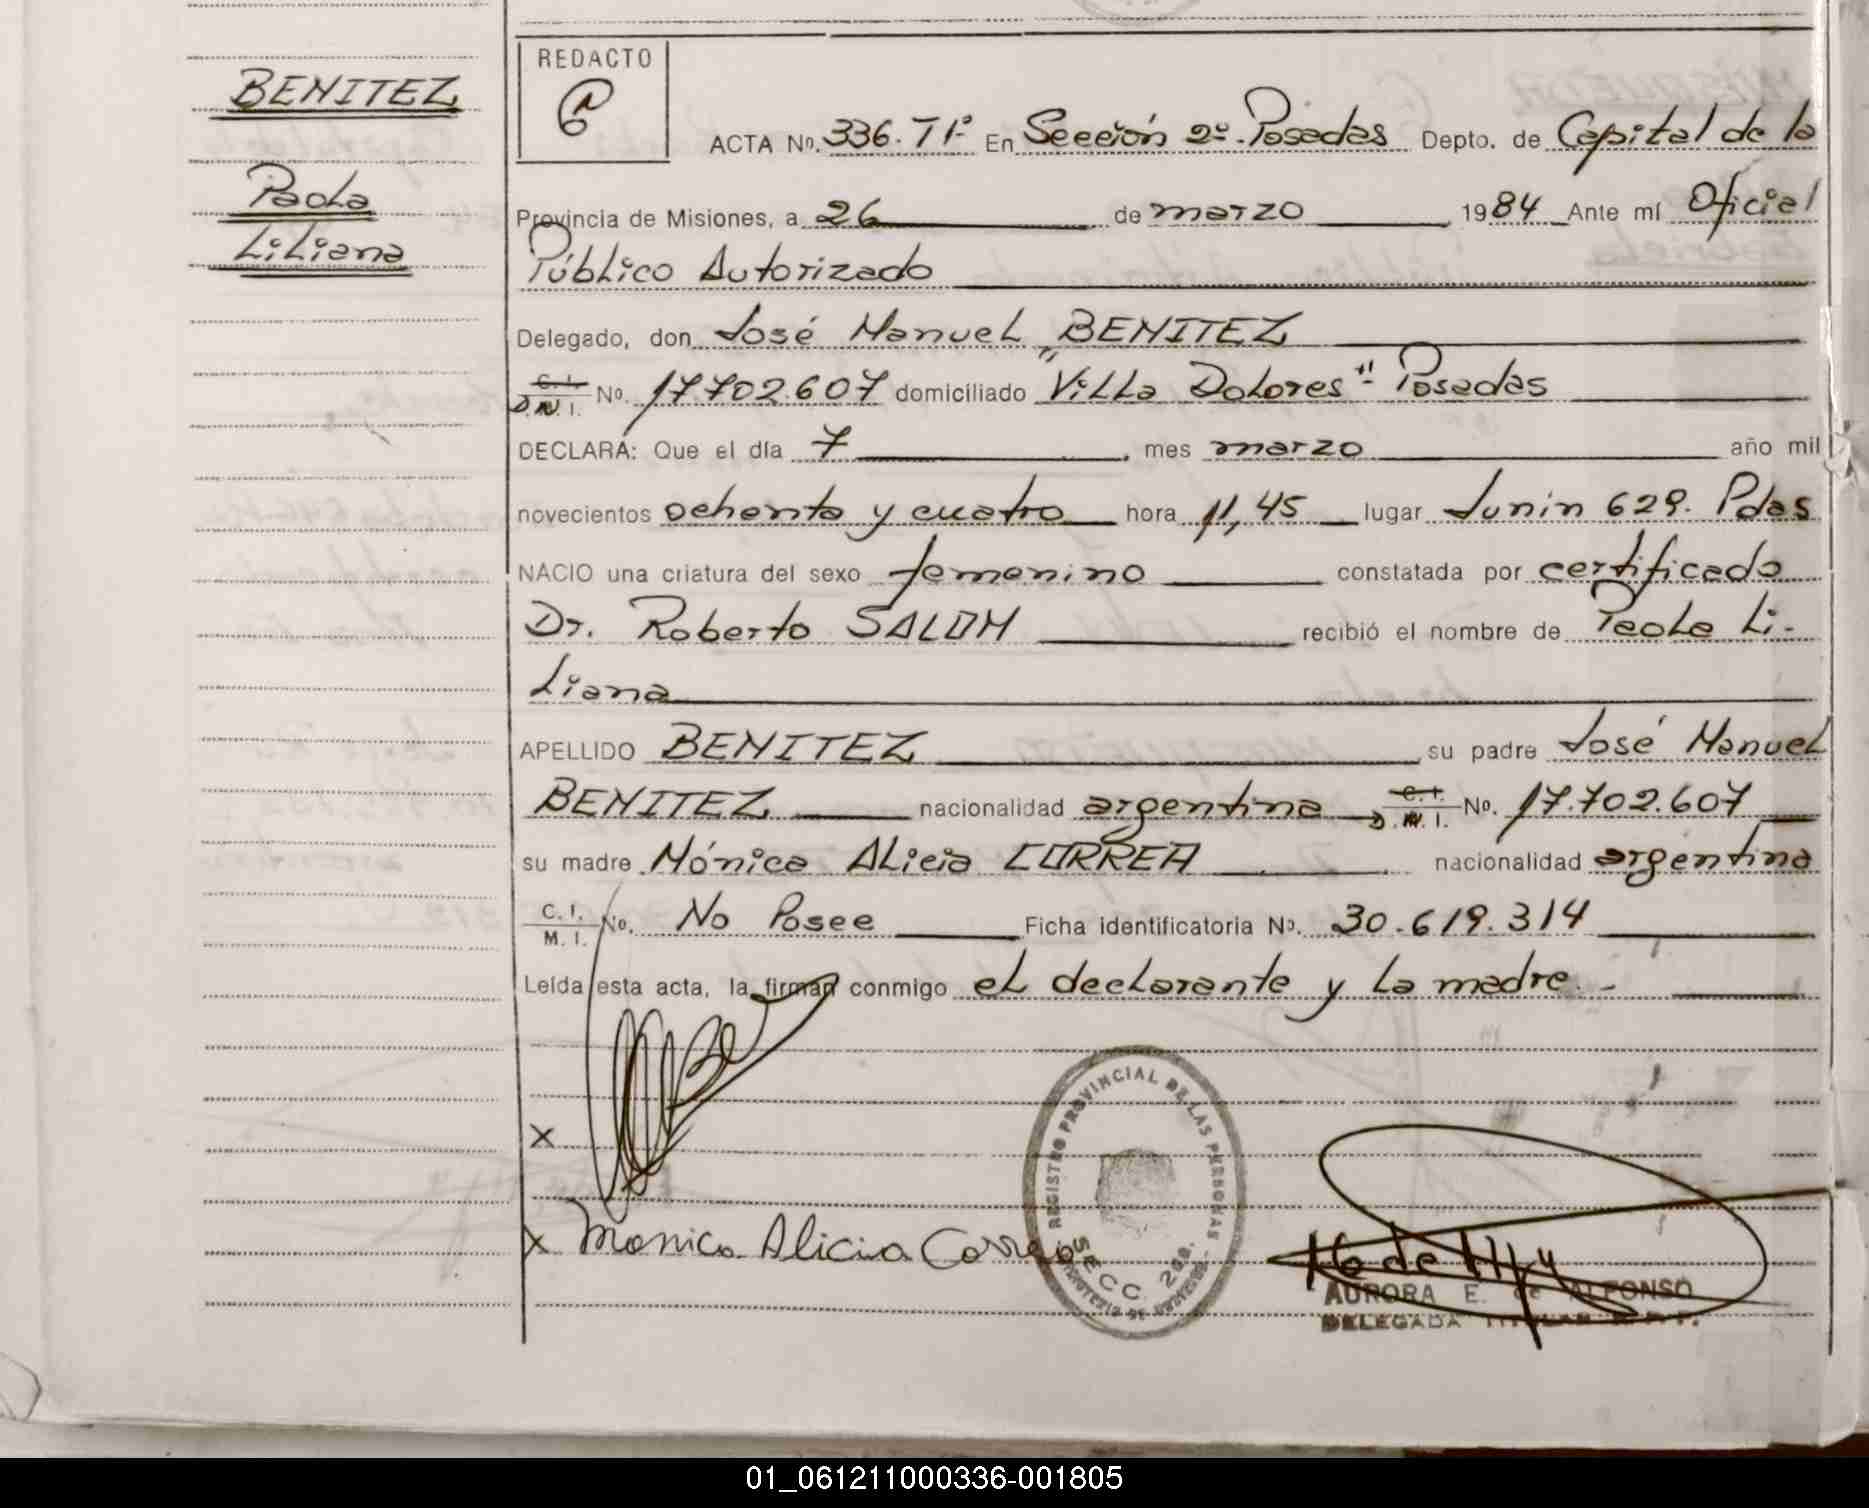 BENITEZ
Paola
Liliana
REDACTO
ACTA Nº. 336. Tº1º En Sección 2º - Posadas Depto. de Capital de la
Provincia de Misiones, a 26 de marzo 1984 Ante mí Oficial
Público Autorizado
Delegado, don José Manuel BENITEZ
C. I. D.N.I. Nº. 17.702.607 domiciliado "Villa Dolores" - Posadas
DECLARA: Que el día 7, mes marzo año mil
novecientos ochenta y cuatro hora 11,45 lugar Junín 629. Pdas
NACIO una criatura del sexo femenino constatada por certificado
Dr. Roberto SALOM recibió el nombre de Paola Li-
liana
APELLIDO BENITEZ, su padre José Manuel
BENITEZ nacionalidad argentina C. I. D.N.I. Nº. 17.702.607
su madre Mónica Alicia CORREA nacionalidad argentina
C. I. M. I. Nº. No Posee Ficha identificatoria Nº. 30.619.314
Leída esta acta, la firman conmigo el declarante y la madre. -
X
X Monica Alicia Correa
REGISTRO PROVINCIAL DE LAS PERSONAS
SECC. 2da.
AURORA E. de ALFONSO
DELEGADA TITULAR R.P.P.
01_061211000336-001805